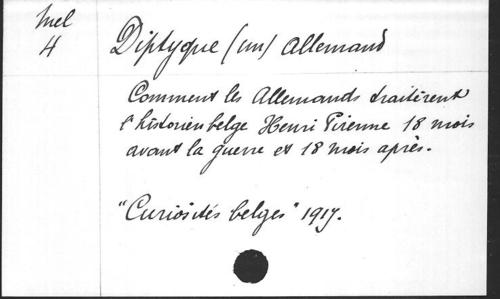 Mel
4
Diptyque (un) allemand
Comment les Allemands traitèrent
l'historien belge Henri Pirenne 18 mois
avant la guerre et 18 mois après.
"Curiosités belges" 1917.